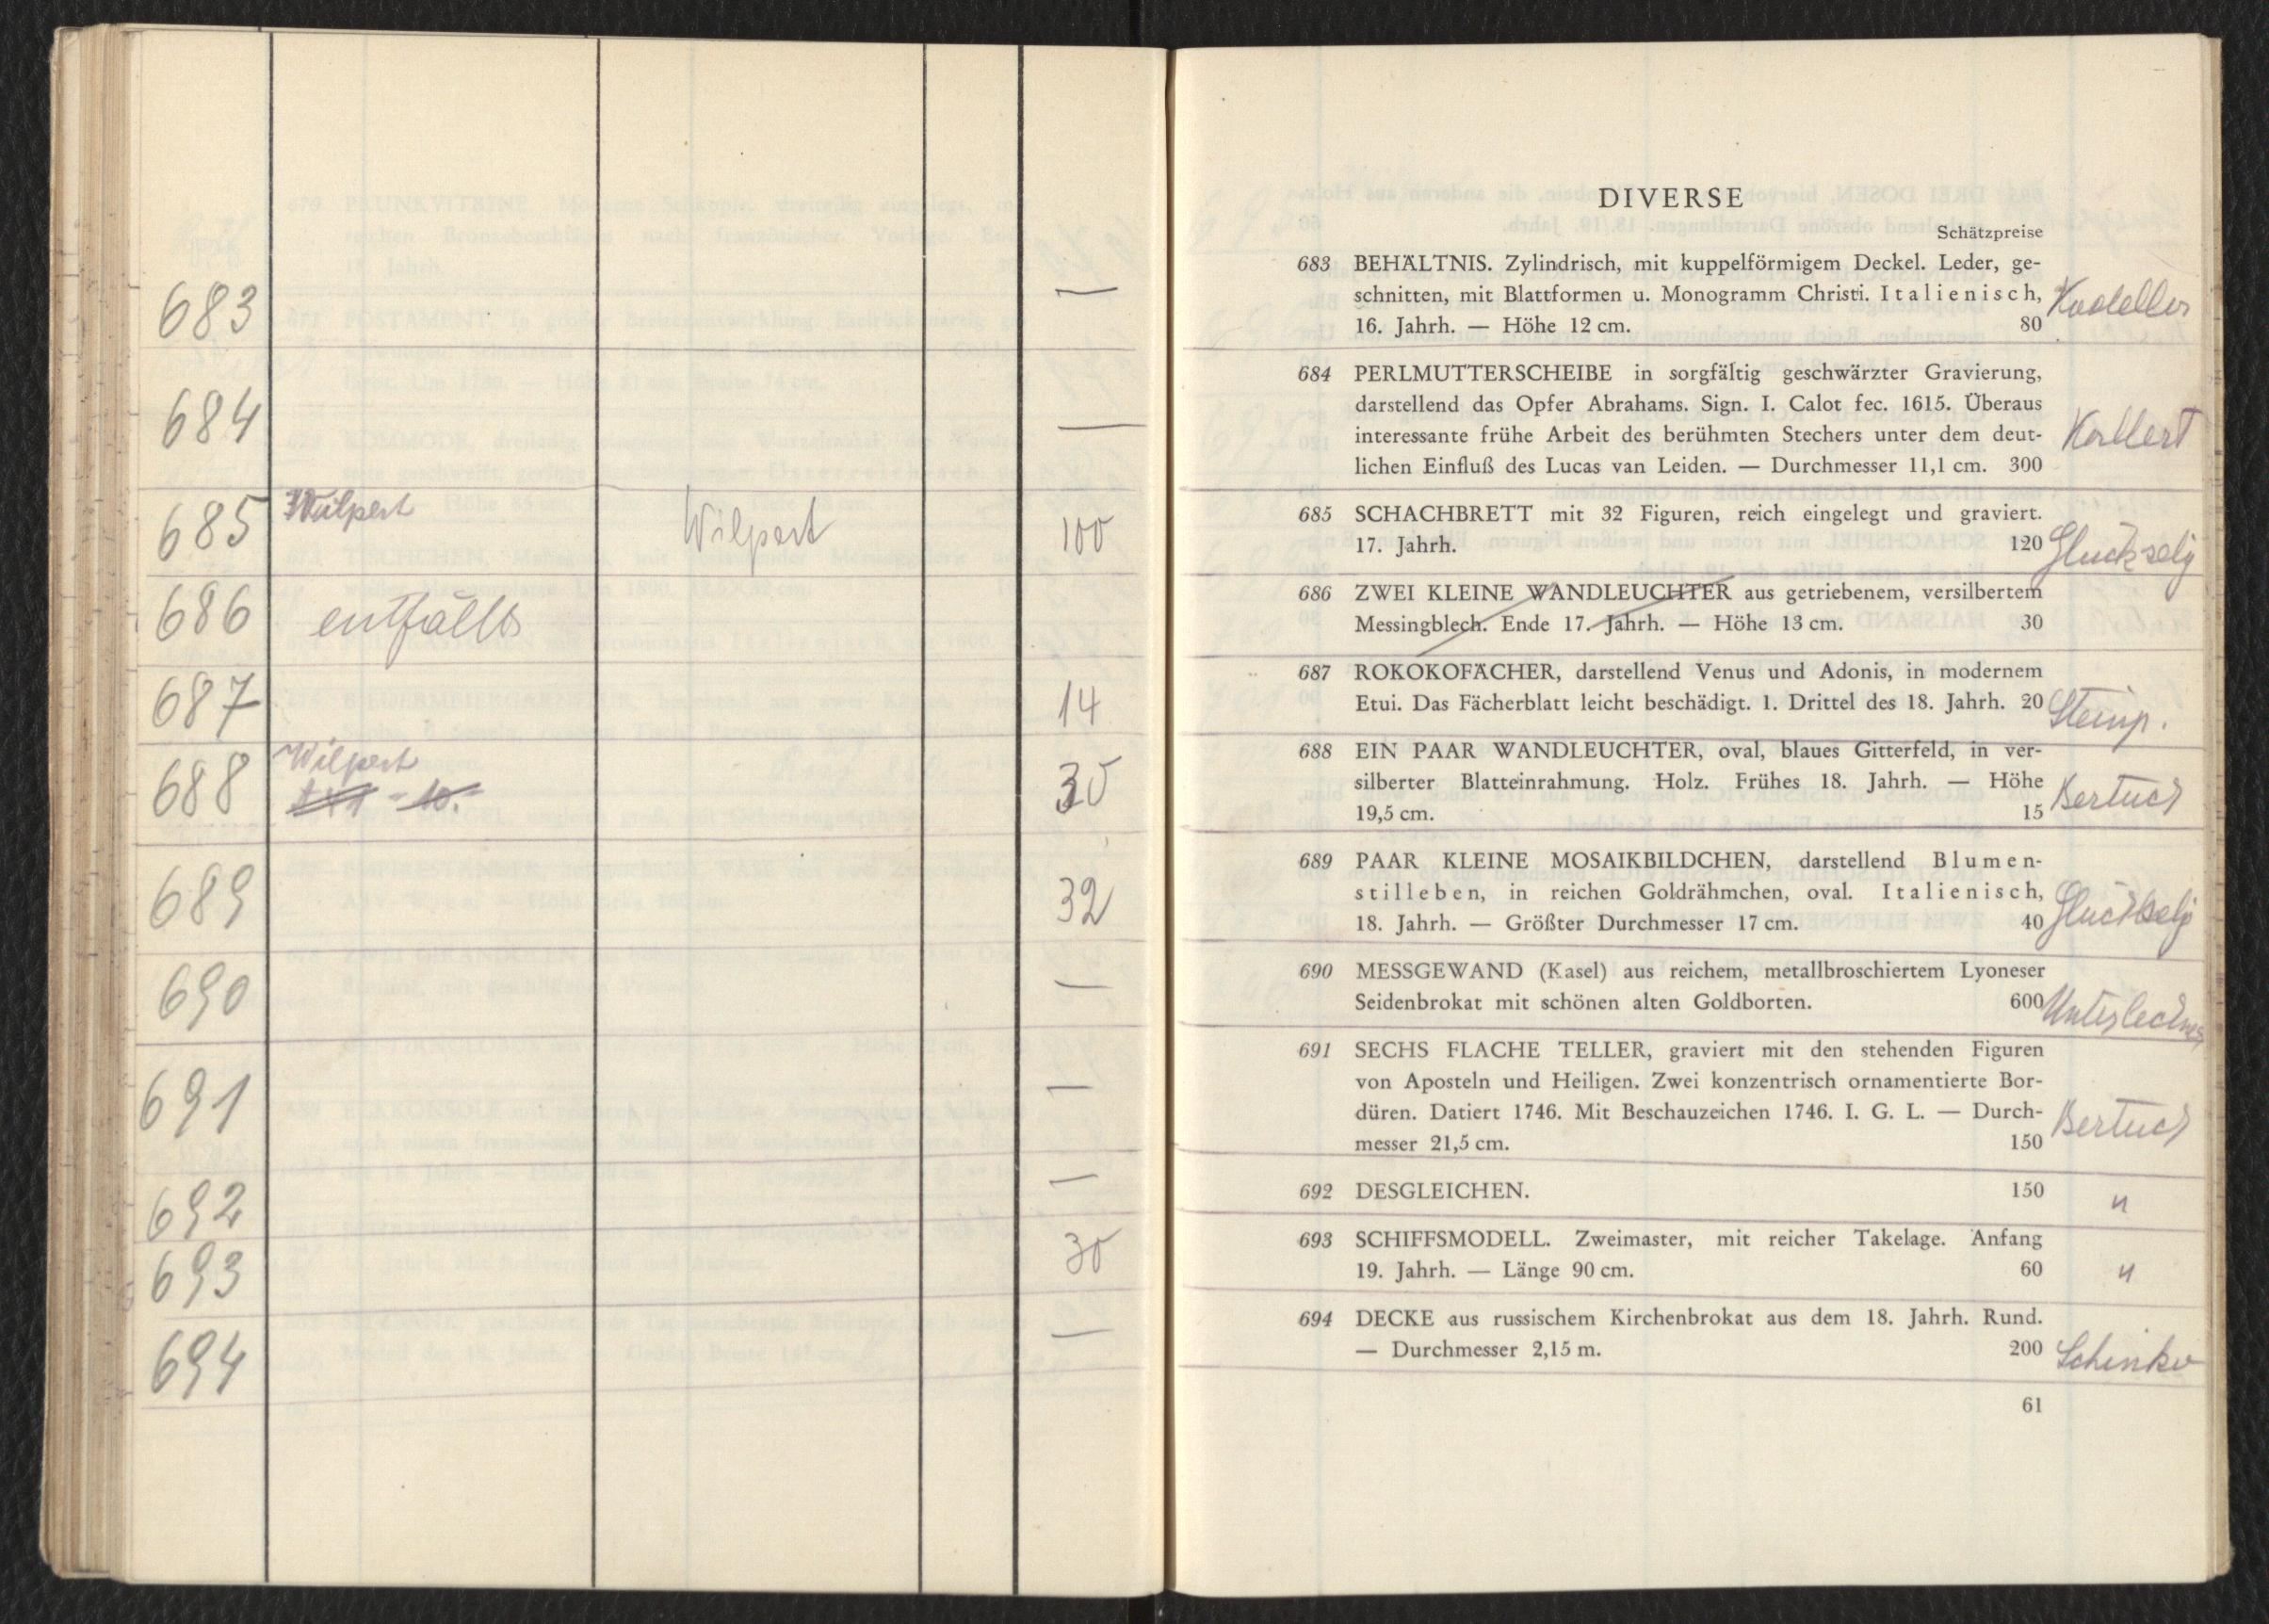 683 —
684 —
685 Wilpert Wilpert 100
686 entfällt
687 14
688 Wilpert 30
689 32
690 —
691 —
692 —
693 30
694 —
DIVERSE
Schätzpreise
683 BEHÄLTNIS. Zylindrisch, mit kuppelförmigem Deckel. Leder, ge-
schnitten, mit Blattformen u. Monogramm Christi. Italienisch,
16. Jahrh. — Höhe 12 cm. 80
684 PERLMUTTERSCHEIBE in sorgfältig geschwärzter Gravierung,
darstellend das Opfer Abrahams. Sign. I. Calot fec. 1615. Überaus
interessante frühe Arbeit des berühmten Stechers unter dem deut-
lichen Einfluß des Lucas van Leiden. — Durchmesser 11,1 cm. 300
685 SCHACHBRETT mit 32 Figuren, reich eingelegt und graviert.
17. Jahrh. 120 Glückselig
686 ZWEI KLEINE WANDLEUCHTER aus getriebenem, versilbertem
Messingblech. Ende 17. Jahrh. — Höhe 13 cm. 30
687 ROKOKOFÄCHER, darstellend Venus und Adonis, in modernem
Etui. Das Fächerblatt leicht beschädigt. 1. Drittel des 18. Jahrh. 20
688 EIN PAAR WANDLEUCHTER, oval, blaues Gitterfeld, in ver-
silberter Blatteinrahmung. Holz. Frühes 18. Jahrh. — Höhe
19,5 cm. 15 Bertuch
689 PAAR KLEINE MOSAIKBILDCHEN, darstellend Blumen-
stilleben, in reichen Goldrähmchen, oval. Italienisch,
18. Jahrh. — Größter Durchmesser 17 cm. 40 Glückselig
690 MESSGEWAND (Kasel) aus reichem, metallbroschiertem Lyoneser
Seidenbrokat mit schönen alten Goldborten. 600
691 SECHS FLACHE TELLER, graviert mit den stehenden Figuren
von Aposteln und Heiligen. Zwei konzentrisch ornamentierte Bor-
düren. Datiert 1746. Mit Beschauzeichen 1746. I. G. L. — Durch-
messer 21,5 cm. 150 Bertuch
692 DESGLEICHEN. 150 "
693 SCHIFFSMODELL. Zweimaster, mit reicher Takelage. Anfang
19. Jahrh. — Länge 90 cm. 60 "
694 DECKE aus russischem Kirchenbrokat aus dem 18. Jahrh. Rund.
— Durchmesser 2,15 m. 200
61